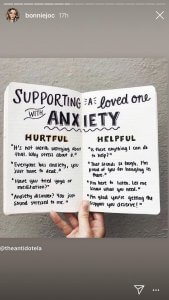 bonniejoc 17h
SUPPORTING A loved one
WITH ANXIETY
HURTFUL
"It's not worth worrying about
that. Why stress about it."
"Everyone has anxiety, you
just have to deal."
"Have you tried yoga or
meditation?"
"Anxiety disorder? You just
sound stressed to me."
HELPFUL
"Is there anything I can do
to help?"
"That sounds so tough. I'm
proud of you for hanging in
there."
"I'm here to listen. Let me
know what you need."
"I'm glad you're getting the
support you deserve!"
@theantidotela